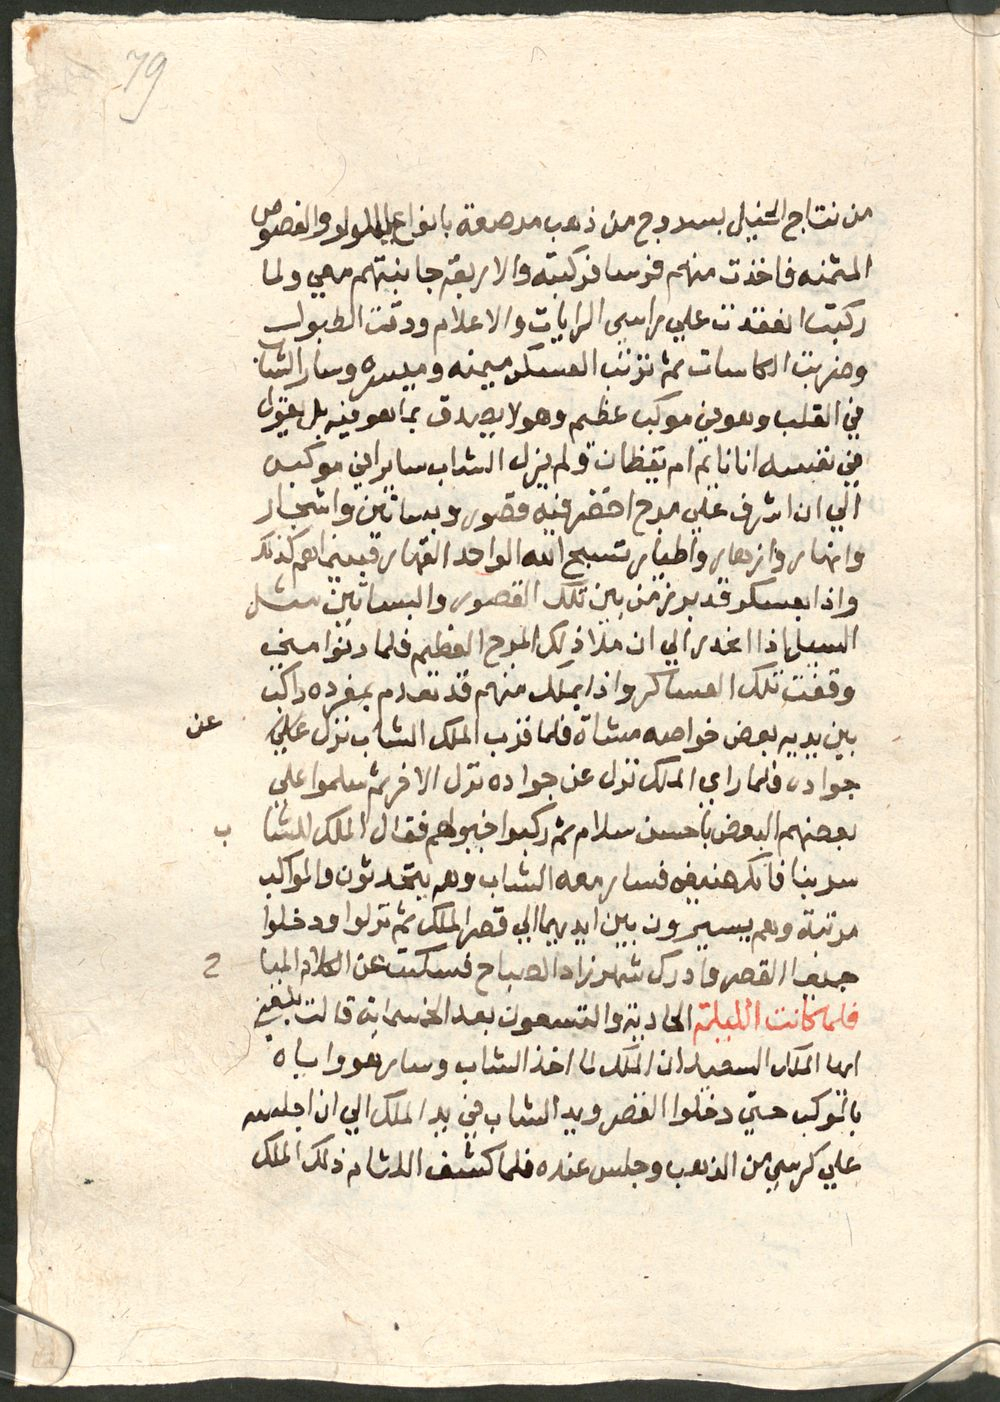 79
من نتاج الخيل بسروج من ذهب مرصعة بانواع اللولو والفصوص
المثمنه فاخذت منهم فرسا فركبته والاربعة جانبتهم معي ولما
ركبت انعقدت علي راسي الرايات والاعلام ودقت الطبول
وضربت الكاسات ثم ترتب العسكر ميمنه وميسره وسار الشاب
في القلب وهو في موكب عظيم وهو لا يصدق بما هو فيه بل يقول
في نفسه انا نايم ام يقظان ولم يزل الشاب ساير في موكبه
الي ان اشرف علي مرج اخضر فيه قصور وبساتين واشجار
وانهار وازهار واطيار تسبح الله الواحد القهار فبينما هم كذلك
واذا بعسكر قد برز من بين تلك القصور والبساتين مثل
السيل اذا انحدر الي ان ملا ذلك المرج العظيم فلما دنوا منه
وقفت تلك العساكر واذا بملك منهم قد تقدم بمفرده راكب
بين يديه بعض خواصه مشاة فلما قرب الملك الشاب نزل عن
جواده فلما راي الملك نزل عن جواده نزل الاخر ثم سلموا علي
بعضهم البعض باحسن سلام ثم ركبوا خيولهم فقال الملك للشاب
سر بنا فانك ضيفي فسار معه الشاب وهم يتحدثون والمواكب
مرتبة وهم يسيرون بين ايديهما الي قصر الملك ثم نزلوا ودخلوا
جميعا القصر وادرك شهرزاد الصباح فسكتت عن الكلام المباح
فلما كانت الليلة الحادية والتسعون بعد الخمسماية قالت بلغني
ايها الملك السعيد ان الملك لما اخذ الشاب وسار هو واياه
بالموكب حتي دخلوا القصر ويد الشاب في يد الملك الي ان اجلسه
علي كرسي من الذهب وجلس عنده فلما كشف اللثام ذلك الملك